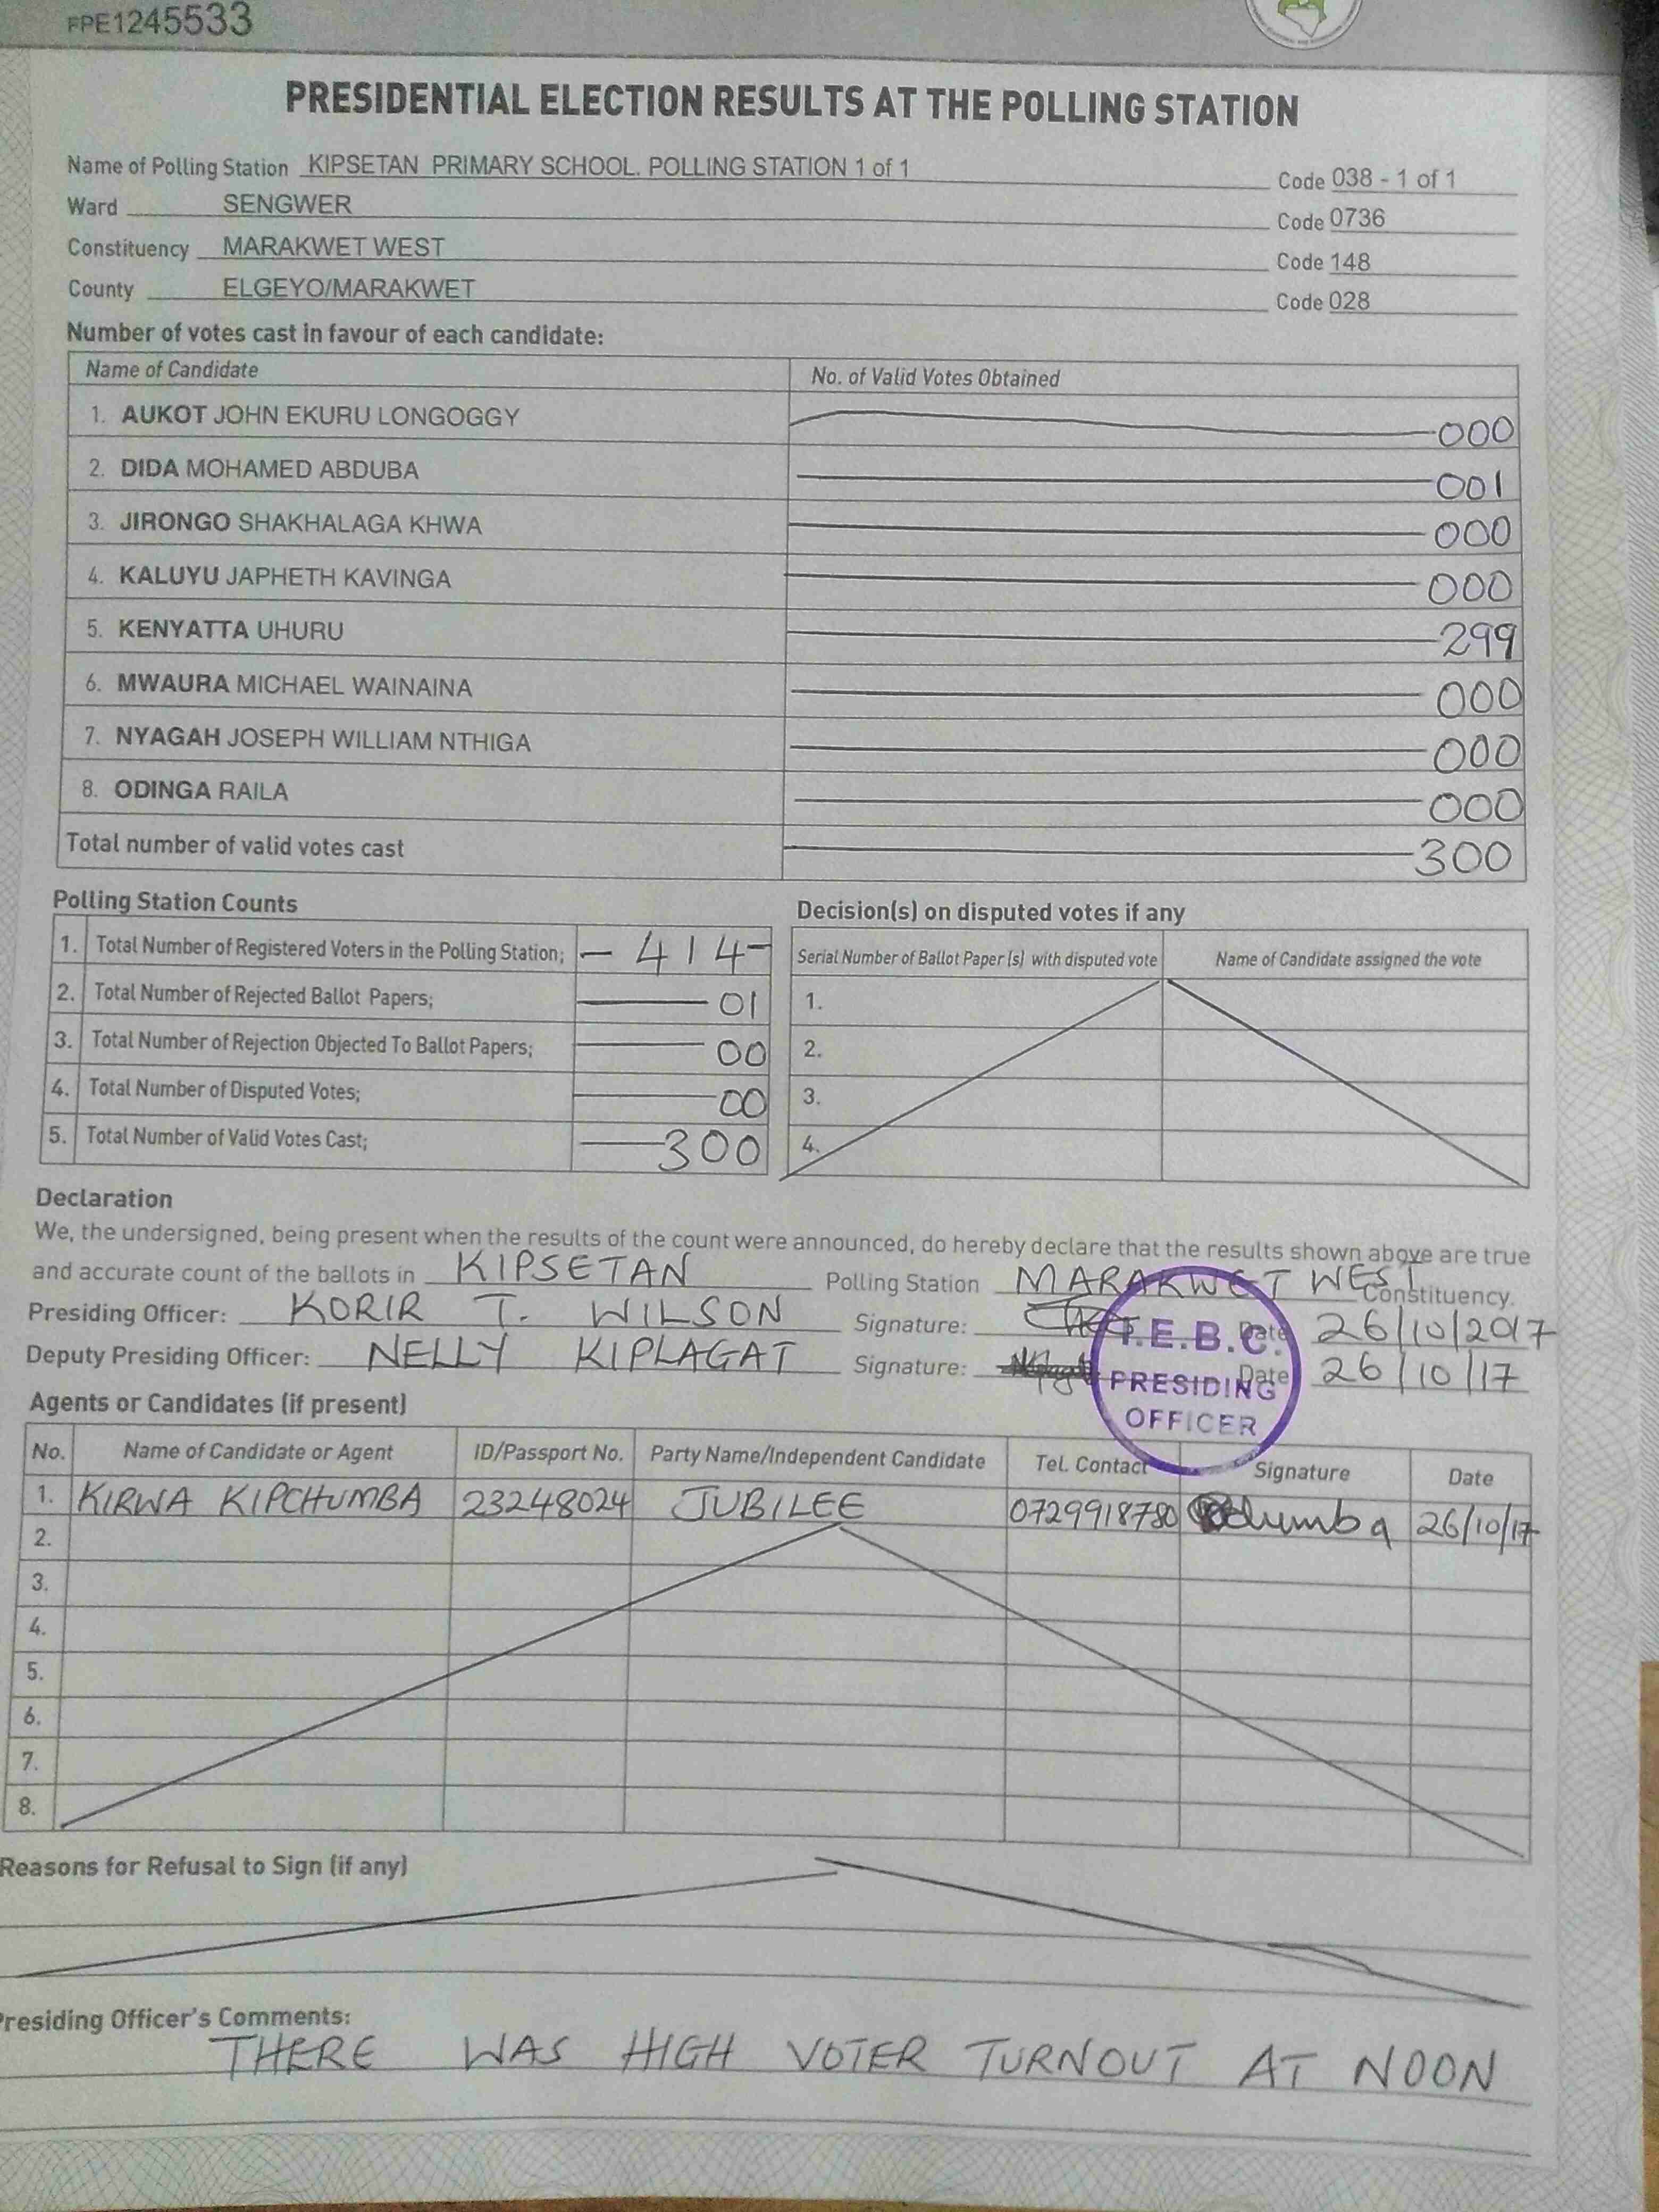 FPE1245533
PRESIDENTIAL ELECTION RESULTS AT THE POLLING STATION
Name of Polling Station KIPSETAN PRIMARY SCHOOL. POLLING STATION 1 of 1 Code 038 - 1 of 1
Ward SENGWER Code 0736
Constituency MARAKWET WEST Code 148
County ELGEYO/MARAKWET Code 028
Number of votes cast in favour of each candidate:
Name of Candidate No. of Valid Votes Obtained
1. AUKOT JOHN EKURU LONGOGGY 000
2. DIDA MOHAMED ABDUBA 001
3. JIRONGO SHAKHALAGA KHWA 000
4. KALUYU JAPHETH KAVINGA 000
5. KENYATTA UHURU 299
6. MWAURA MICHAEL WAINAINA 000
7. NYAGAH JOSEPH WILLIAM NTHIGA 000
8. ODINGA RAILA 000
Total number of valid votes cast 300
Polling Station Counts
1. Total Number of Registered Voters in the Polling Station; - 414 -
2. Total Number of Rejected Ballot Papers; 01
3. Total Number of Rejection Objected To Ballot Papers; 00
4. Total Number of Disputed Votes; 00
5. Total Number of Valid Votes Cast; 300
Decision(s) on disputed votes if any
Serial Number of Ballot Paper (s) with disputed vote Name of Candidate assigned the vote
1.
2.
3.
4.
Declaration
We, the undersigned, being present when the results of the count were announced, do hereby declare that the results shown above are true
and accurate count of the ballots in KIPSETAN Polling Station MARAKWET WEST Constituency.
Presiding Officer: KORIR T. WILSON Signature: Date 26/10/2017
Deputy Presiding Officer: NELLY KIPLAGAT Signature: Date 26/10/17
I.E.B.C.
PRESIDING
OFFICER
Agents or Candidates (if present)
No. Name of Candidate or Agent ID/Passport No. Party Name/Independent Candidate Tel. Contact Signature Date
1. KIRWA KIPCHUMBA 23248024 JUBILEE 0729918780 26/10/17
2.
3.
4.
5.
6.
7.
8.
Reasons for Refusal to Sign (if any)
Presiding Officer's Comments:
THERE WAS HIGH VOTER TURNOUT AT NOON